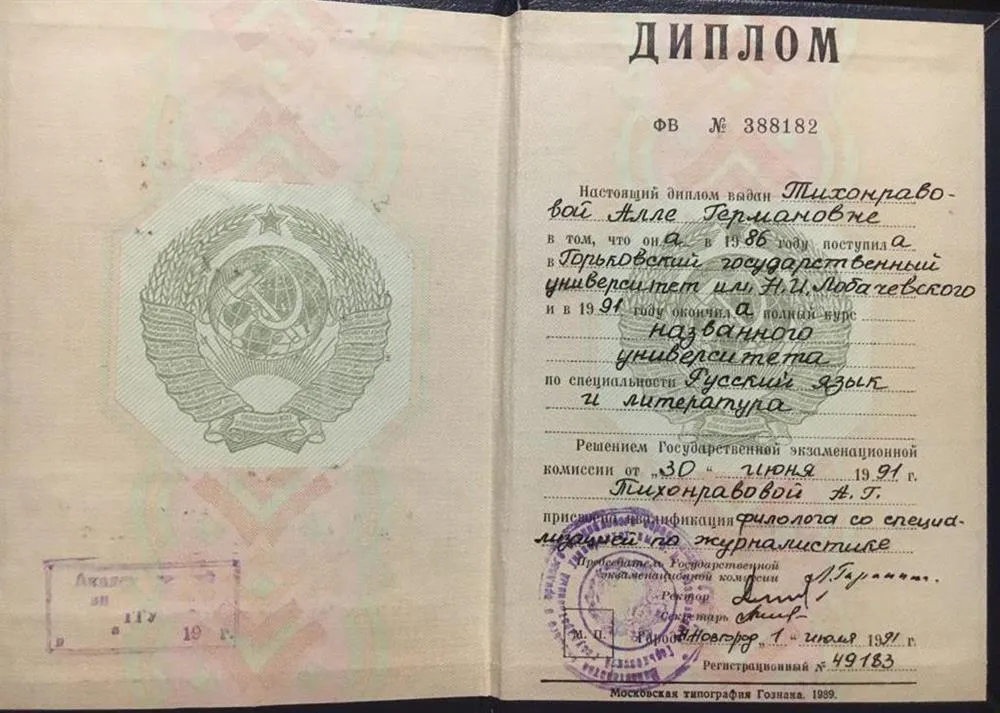 ДИПЛОМ
ФВ № 388182
Настоящий диплом выдан Тихонраво-
вой Алле Германовне
в том, что она в 1986 году поступила
в Горьковский государственный
университет им. Н.И. Лобачевского
и в 1991 году окончила полный курс
названного
университета
по специальности Русский язык
и литература
Решением Государственной экзаменационной
комиссии от „30“ июня 1991 г.
Тихонравовой А.Г.
присвоена квалификация филолога со специа-
лизацией по журналистике
Председатель Государственной
экзаменационной комиссии
Ректор
Секретарь
М. П.
Город Н.Новгород „1“ июля 1991 г.
Регистрационный № 49183
Московская типография Гознака. 1989.
ГГУ
19 г.